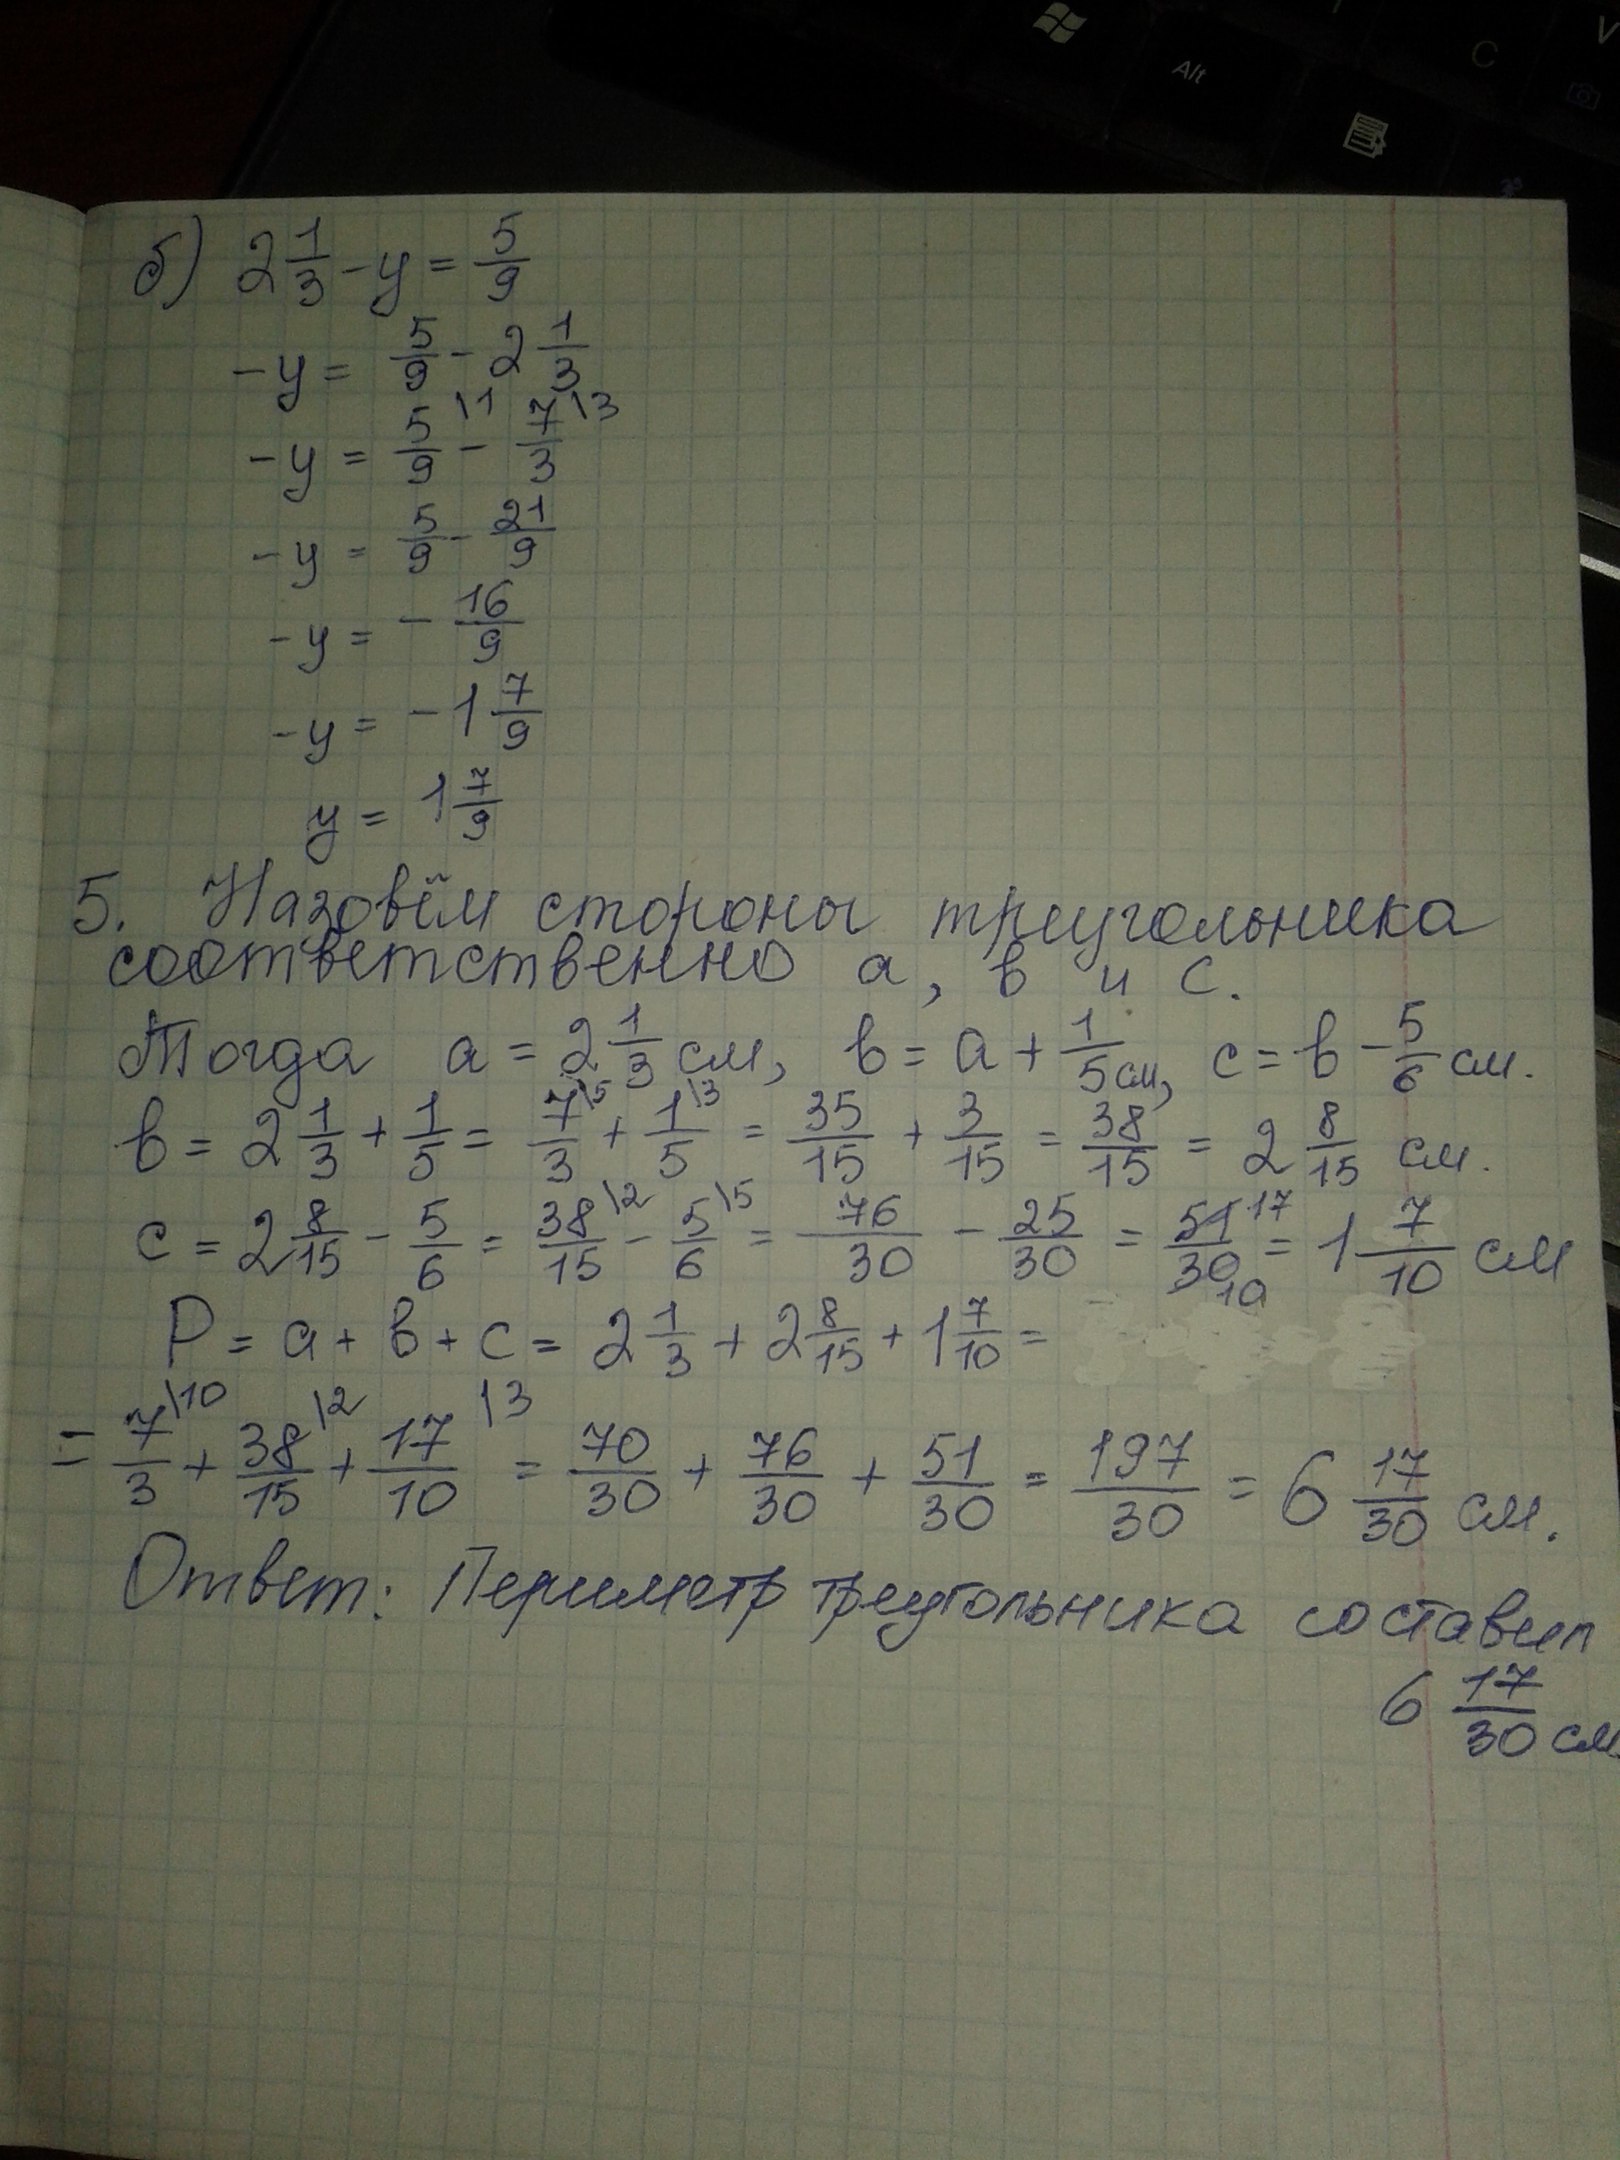 Alt
C
V
б) 2 1/3 - y = 5/9
-y = 5/9 - 2 1/3
-y = 5/9 \1 - 7/3 \3
-y = 5/9 - 21/9
-y = - 16/9
-y = -1 7/9
y = 1 7/9
5. Назовём стороны треугольника
соответственно a, в и c.
Тогда a = 2 1/3 см, в = a + 1/5 см, c = в - 5/6 см.
в = 2 1/3 + 1/5 = 7/3 \5 + 1/5 \3 = 35/15 + 3/15 = 38/15 = 2 8/15 см.
c = 2 8/15 - 5/6 = 38/15 \2 - 5/6 \5 = 76/30 - 25/30 = 51/30 17/10 = 1 7/10 см
P = a + в + c = 2 1/3 + 2 8/15 + 1 7/10 =
= 7/3 \10 + 38/15 \2 + 17/10 \3 = 70/30 + 76/30 + 51/30 = 197/30 = 6 17/30 см.
Ответ: Периметр треугольника составит
6 17/30 см